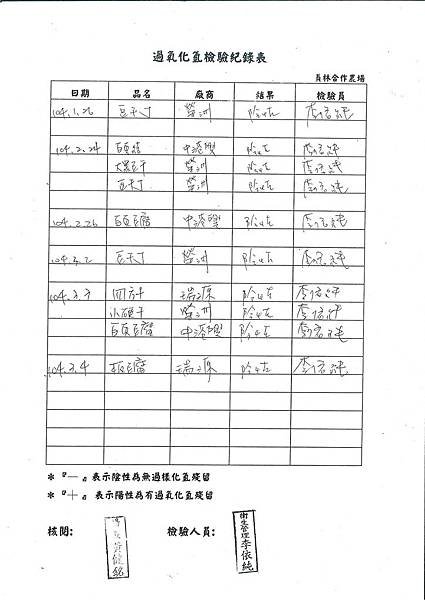 過氧化氫檢驗紀錄表
員林合作農場
日期 品名 廠商 結果 檢驗員
104.1.26 豆干丁 榮洲 陰性 李依純
104.2.24 百頁結 中港興 陰性 李依純
大黑豆干 榮洲 陰性 李依純
豆干丁 榮洲 陰性 李依純
104.2.26 百頁豆腐 中港興 陰性 李依純
104.3.2 豆干丁 榮洲 陰性 李依純
104.3.3 四方干 瑞源 陰性 李依純
小碩干 榮洲 陰性 李依純
百頁豆腐 中港興 陰性 李依純
104.3.4 板豆腐 瑞源 陰性 李依純
* 『—』表示陰性為無過樣化氫殘留
* 『十』表示陽性為有過氧化氫殘留
核閱: 檢驗人員: 衛生管理李依純